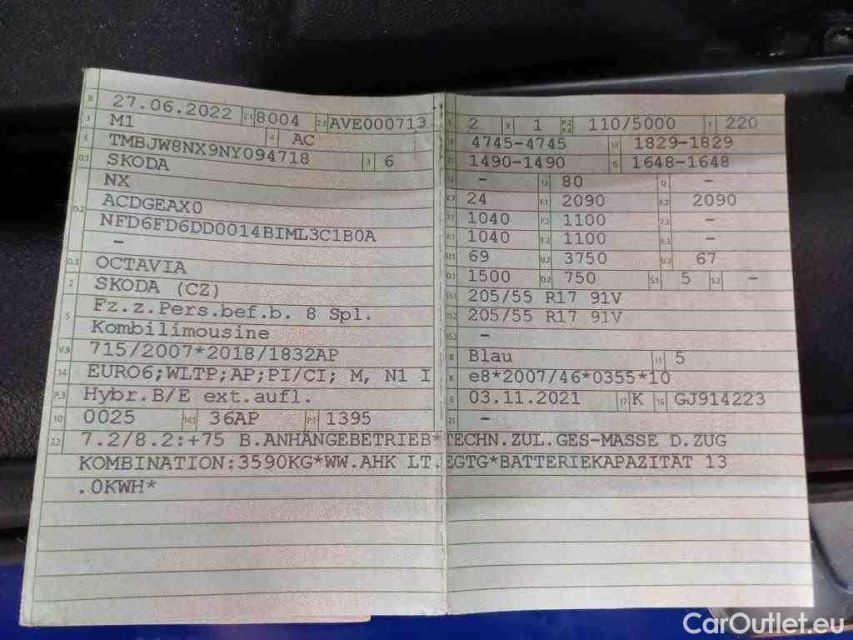 27.06.2022 8004 AVE000713
M1 AC
TMBJW8NX9NY094718
SKODA 6
NX
ACDGEAX0
NFD6FD6DD0014BIML3C1B0A
-
OCTAVIA
SKODA (CZ)
Fz.z.Pers.bef.b. 8 Spl.
Kombilimousine
715/2007*2018/1832AP
EURO6;WLTP;AP;PI/CI; M, N1 I
Hybr.B/E ext.aufl.
0025 36AP 1395
2 1 110/5000 220
4745-4745 1829-1829
1490-1490 1648-1648
- 80 -
24 2090 2090
1040 1100 -
1040 1100 -
69 3750 67
1500 750 5 -
205/55 R17 91V
205/55 R17 91V
-
Blau 5
e8*2007/46*0355*10
03.11.2021 K GJ914223
-
7.2/8.2:+75 B.ANHÄNGEBETRIEB*TECHN.ZUL.GES-MASSE D.ZUG
KOMBINATION:3590KG*WW.AHK LT.EGTG*BATTERIEKAPAZITÄT 13
.0KWH*
CarOutlet.eu